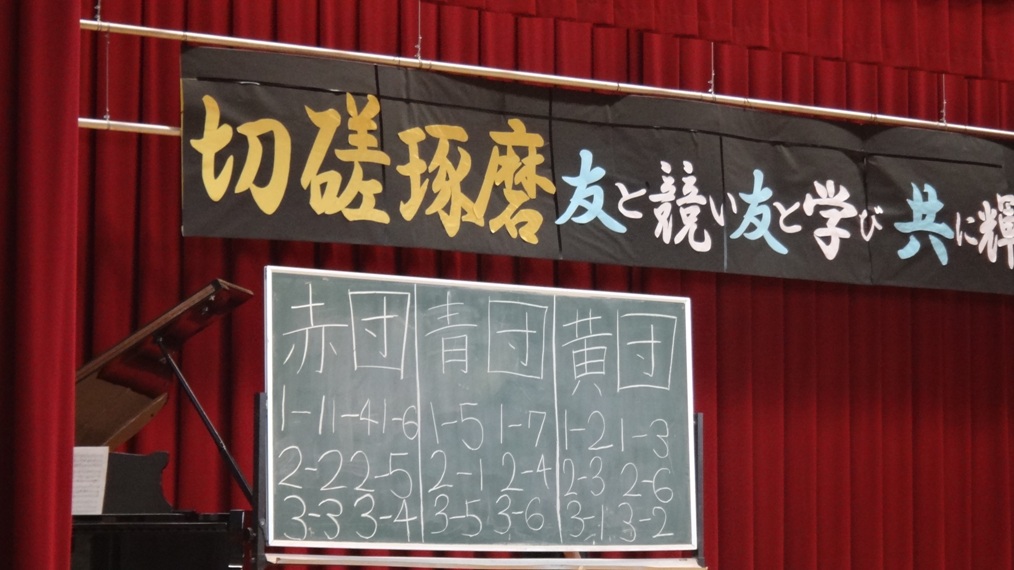 切磋琢磨 友と競い友と学び 共に輝
赤団 青団 黄団
1-1 1-4 1-6 1-5 1-7 1-2 1-3
2-2 2-5 2-1 2-4 2-3 2-6
3-3 3-4 3-5 3-6 3-1 3-2